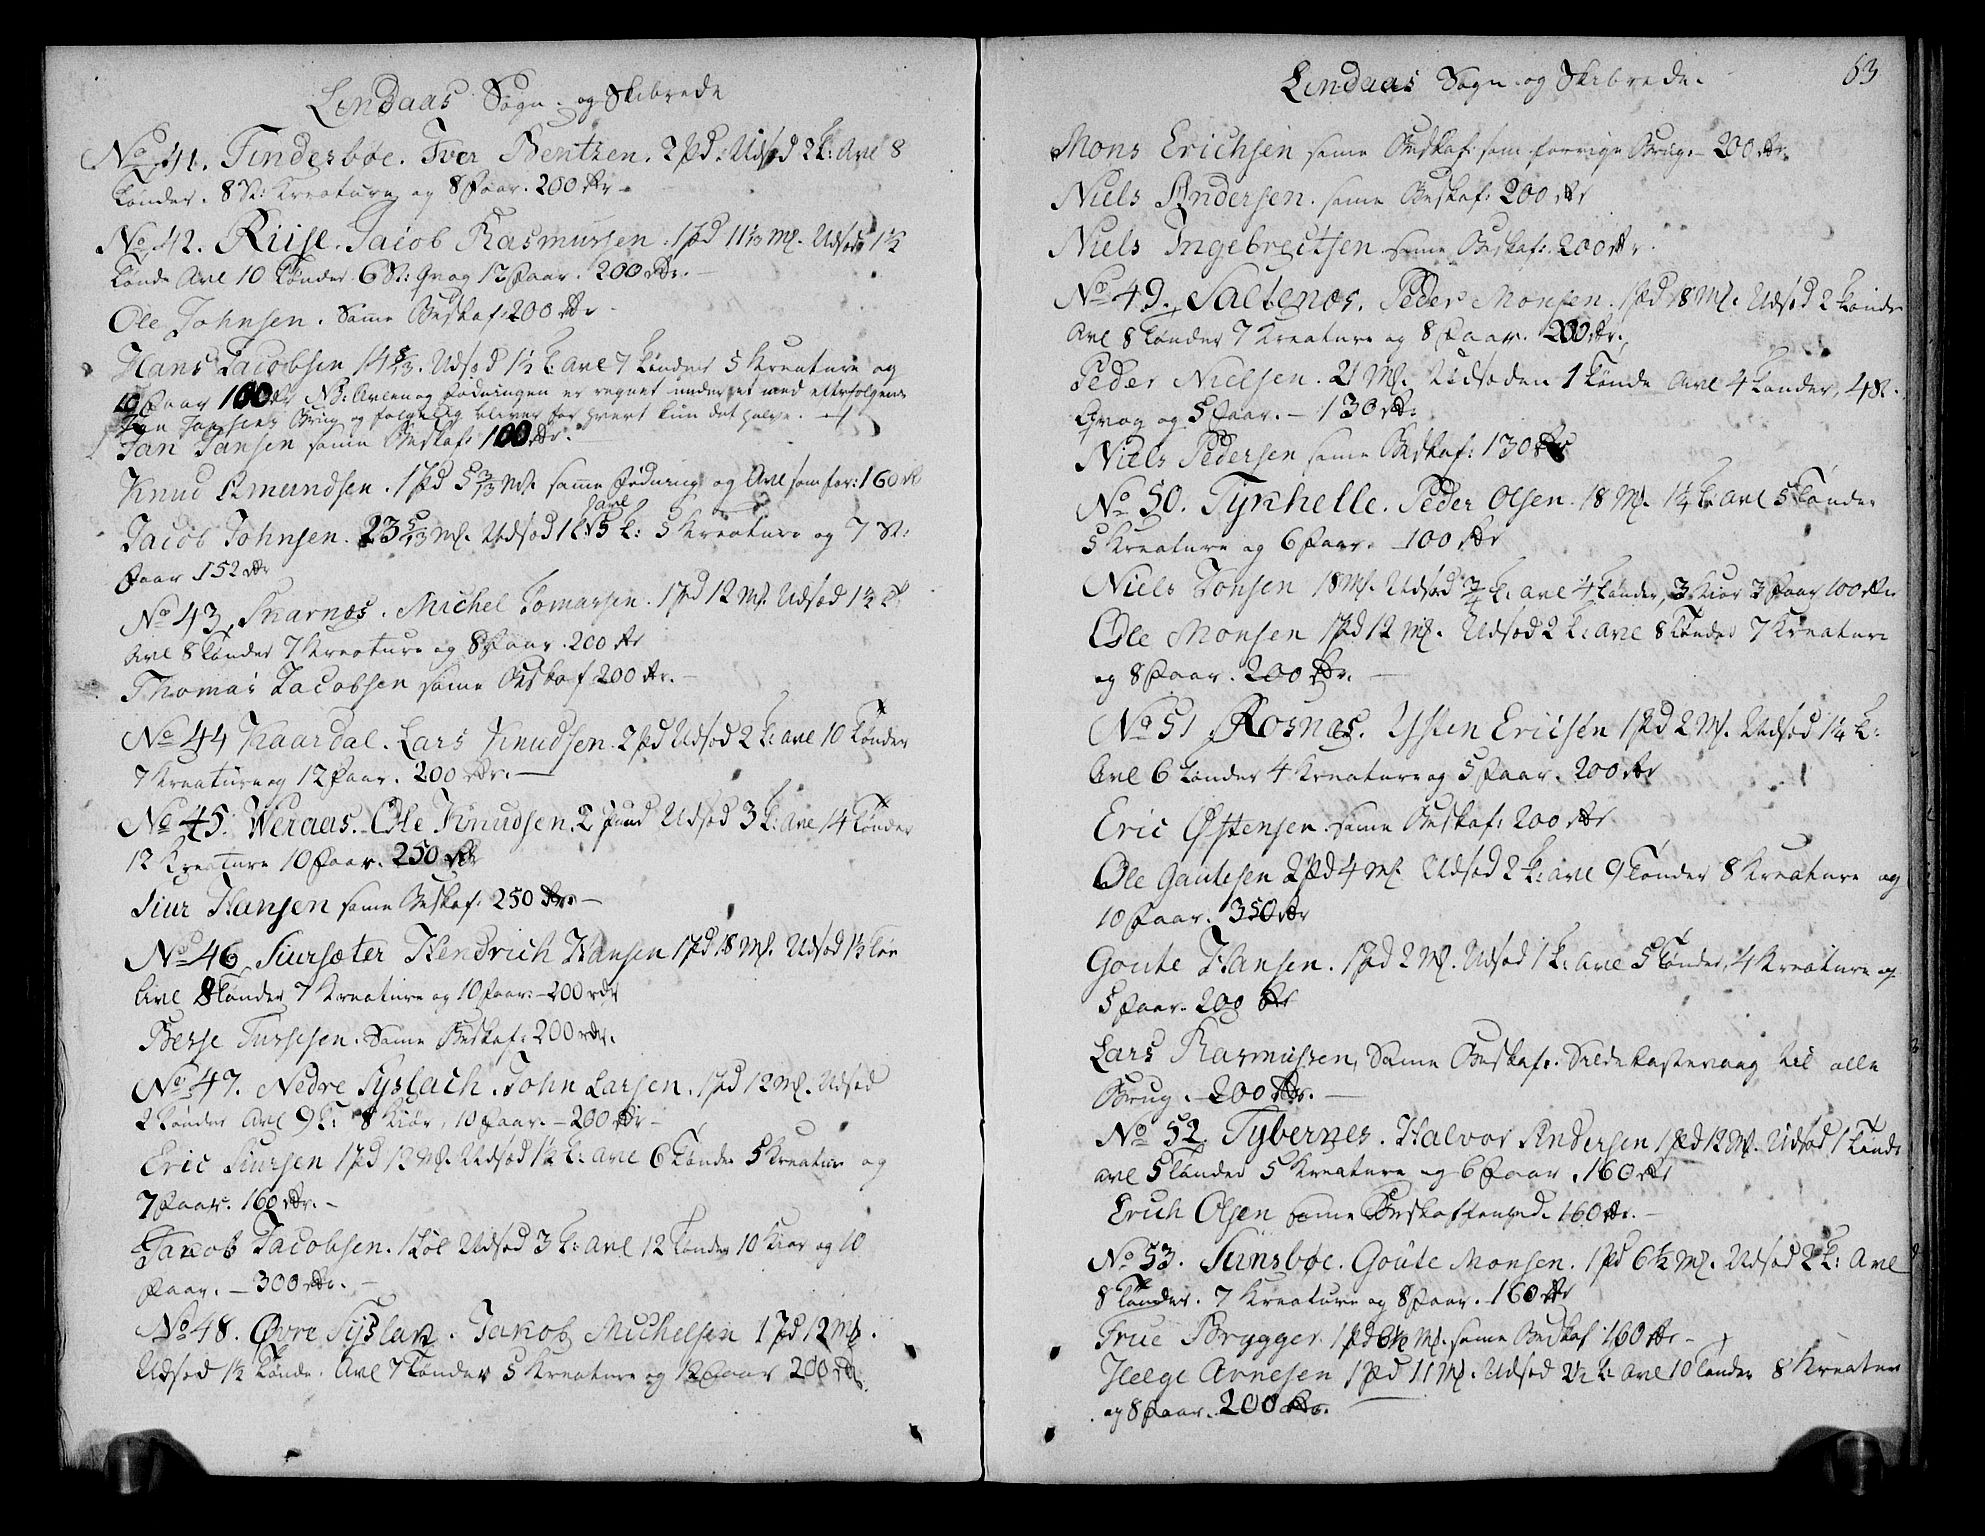 Lindaas Sogn og Skibrede
No 41. Tindesbøe. Iver Bentzen. 2 Pd: Udsød 2 t: Avl 8
tønder. 8 St: Kreature og 8 Faar. 200 rdr
No 42. Riise. Jacob Rasmussen. 1 Pd 11 1/3 Ml. Udsød 1 1/2
tønde Avl 10 tønder 6 St: Qvæg 12 Faar. 200 rdr.
Ole Johnsen. Same Beskaf: 200 rdr
Hans Jacobsen Udsød 1 1/2 t: avl 7 tønder 5 Kreature og
10 Faar 100 rdr NB: Avlen og Fødningen er regnet under et med efterfølgende
Jan Jansens Brug og følgelig bliver for hvert kun det halve.
Jan Jansen same Beskaf: 100 rdr.
Knud Amundsen. 1 Pd 5 Ml. same Fødning og Avl som for: 160 rd
Jacob Johnsen. 23 Ml. Udsød 1 t: avl 5 t: 5 Kreature og 7 St:
Faar 152 rdr
No 43. Skarnæs. Michel Tomassen. 1 Pd 12 Ml. Udsød 1 1/2 t:
Avl 8 tønder 7 Kreature og 8 Faar. 200 rdr
Thomas Jacobsen same Beskaf 200 rdr.
No 44 Kaardal. Lars Knudsen. 2 Pd Udsød 2 t: avl 10 tønder
7 Kreature og 12 Faar. 200 rdr.
No 45. Weraas. Ole Knudsen. 2 Pund Udsød 3 t: avl 14 tønder
12 Kreature 10 Faar. 250 rdr
Siur Hansen same Beskaf: 250 rdr.
No 46. Siursæter Hendrich Hansen 1 Pd 18 Ml. Udsød 1 1/2 tøn
Avl 8 tønder 7 Kreature og 10 Faar. 200 rdr
Berse Same Beskaf: 200 rdr.
No 47. Nedre Syslach. John Larsen. 1 Pd 12 Ml. Udsød
2 tønder Avl 9 t: 8 Kiør, 10 Faar. 200 rdr
Eric Siursen 1 Pd 12 Ml. Udsød 1 1/2 t: avl 6 tønder 5 Kreature og
7 Faar. 160 rdr.
Jakob Jacobsen. 1 Løb Udsød 3 t: avl 12 tønder 10 Kiør og 10
Faar. 300 rdr.
No 48. Øvre Syslak. Jakob Michelsen 1 Pd 12 Ml.
Udsød 1 1/2 tønde. Avl 7 tønder 5 Kreature og 12 Faar 200 rd.
Lindaas Sogn og Skibrede. 63
Mons Erichsen same Beskaf: som forrige Brug. 200 rdr.
Niels Andersen. same Beskaf: 200 rdr
Niels Ingebrectsen same Beskaf: 200 rdr.
No 49. Saltenæs. Peder Monsen. 1 Pd 18 Ml. Udsød 2 tønder
Avl 8 tønder 7 Kreature og 8 Faar. 200 rdr.
Peder Nielsen. 21 Ml. Udsøden 1 tønde Avl 4 tønder, 4 St.
Qvæg og 5 Faar. 130 rdr:
Niels Pedersen same Beskaf: 130 rdr
No 50. Tykhelle. Peder Olsen. 18 Ml. 1 1/4 t: avl 5 tønder
5 Kreature og 6 Faar. 100 rdr
Niels Jonsen 18 Ml. Udsød 3/4 t: avl 4 tønder, 3 Kiør 3 Faar 100 rdr
Ole Monsen 1 Pd 12 Ml. Udsød 2 t: avl 8 tønder 7 Kreature
og 8 Faar. 200 rdr.
No 51 Rosnæs. Ysten Ericsen 1 Pd 2 Ml. Udsød 1 1/4 t:
Avl 6 tønder 4 Kreature og 5 Faar. 200 rdr
Eric Østensen same Beskaf: 200 rdr
Ole Gautesen 2 Pd 4 Ml Udsød 2 t: avl 9 tønder 8 Kreature og
10 Faar. 350 rdr
Goute Hansen. 1 Pd 2 Ml. Udsød 1 t: avl 5 tønder, 4 Kreature og
5 Faar. 200 rdr
Lars Rasmussen, Same Beskaf: Sildekastevaag til alle
Brug. 200 rdr.
No 52. Tybernes. Halvor Andersen 1 Pd 12 Ml. Udsød 1 tønde
avl 5 tønder 5 Kreature og 6 Faar. 160 rdr
Erich Olsen same Beskaffenhed. 160 rdr.
No 53. Sunsbøe. Goute Monsen. 1 Pd 6 1/2 Ml. Udsød 2 t: Avl
8 tønder. 7 Kreature og 8 Faar. 160 rdr
True Brygger 1 Pd 6 1/2 Ml. same Beskaf: 160 rdr
Helge Arnesen 1 Pd 11 Ml. Udsød 2 1/2 t: avl 10 tønder 8 Kreatur
og 8 Faar. 200 rdr.